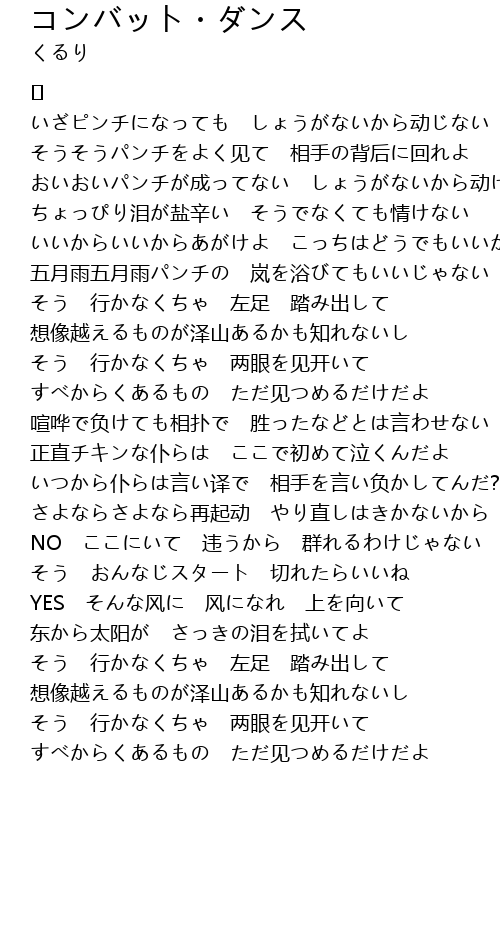 コンバット・ダンス
くるり
いざピンチになっても　しょうがないから动じない
そうそうパンチをよく见て　相手の背后に回れよ
おいおいパンチが成ってない　しょうがないから动け
ちょっぴり泪が盐辛い　そうでなくても情けない
いいからいいからあがけよ　こっちはどうでもいいか
五月雨五月雨パンチの　岚を浴びてもいいじゃない
そう　行かなくちゃ　左足　踏み出して
想像越えるものが泽山あるかも知れないし
そう　行かなくちゃ　两眼を见开いて
すべからくあるもの　ただ见つめるだけだよ
喧哗で负けても相扑で　胜ったなどとは言わせない
正直チキンな仆らは　ここで初めて泣くんだよ
いつから仆らは言い译で　相手を言い负かしてんだ?
さよならさよなら再起动　やり直しはきかないから
NO　ここにいて　违うから　群れるわけじゃない
そう　おんなじスタート　切れたらいいね
YES　そんな风に　风になれ　上を向いて
东から太阳が　さっきの泪を拭いてよ
そう　行かなくちゃ　左足　踏み出して
想像越えるものが泽山あるかも知れないし
そう　行かなくちゃ　两眼を见开いて
すべからくあるもの　ただ见つめるだけだよ